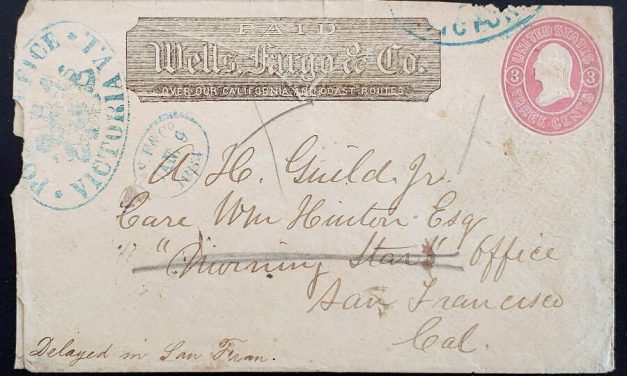 PAID
Wells, Fargo & Co.
OVER OUR CALIFORNIA AND COAST ROUTES
UNITED STATES
3 3
THREE CENTS
VICTORIA
A. H. Guild Jr.
Care Wm Hinton Esq
"Morning Star" Office
San Francisco
Cal.
Delayed in San Fran.